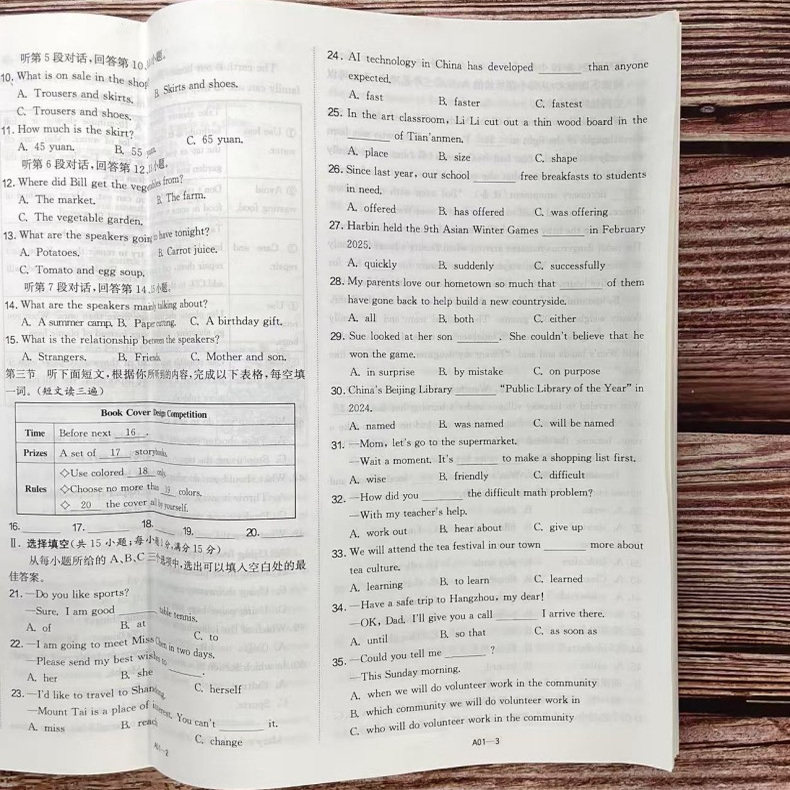 听第5段对话,回答第10、 小题。
10. What is on sale in the shop
A. Trousers and skirts.
B. Skirts and shoes.
C. Trousers and shoes.
11. How much is the skirt?
A. 45 yuan.
B. 55
C. 65 yuan.
听第6段对话,回答第12、 小题。
12. Where did Bill get the vegetables from?
A. The market.
B. The farm.
C. The vegetable garden.
13. What are the speakers going to have tonight?
A. Potatoes.
B. Carrot juice.
C. Tomato and egg soup.
听第7段对话,回答第14、 小题。
14. What are the speakers mainly talking about?
A. A summer camp. B. Paper cutting. C. A birthday gift.
15. What is the relationship between the speakers?
A. Strangers. B. Friends. C. Mother and son.
第三节 听下面短文,根据你所听到的内容,完成以下表格,每空填
一词。(短文读三遍)
Book Cover Design Competition
Time Before next 16 .
Prizes A set of 17 storybooks.
Rules
◇Use colored 18 only.
◇Choose no more than 19 colors.
◇ 20 the cover all by yourself.
16. 17. 18. 19. 20.
Ⅱ. 选择填空(共15小题;每小题1分,满分15分)
从每小题所给的A、B、C三个选项中,选出可以填入空白处的最
佳答案。
21. —Do you like sports?
—Sure. I am good ______ table tennis.
A. of B. at C. to
22. —I am going to meet Miss Chen in two days.
—Please send my best wishes to ______.
A. her B. she C. herself
23. —I'd like to travel to Shandong.
—Mount Tai is a place of interest. You can't ______ it.
A. miss B. reach C. change
A01—2
24. AI technology in China has developed ______ than anyone
expected.
A. fast B. faster C. fastest
25. In the art classroom, Li Li cut out a thin wood board in the
______ of Tian'anmen.
A. place B. size C. shape
26. Since last year, our school ______ free breakfasts to students
in need.
A. offered B. has offered C. was offering
27. Harbin held the 9th Asian Winter Games ______ in February
2025.
A. quickly B. suddenly C. successfully
28. My parents love our hometown so much that ______ of them
have gone back to help build a new countryside.
A. all B. both C. either
29. Sue looked at her son ______. She couldn't believe that he
won the game.
A. in surprise B. by mistake C. on purpose
30. China's Beijing Library ______ "Public Library of the Year" in
2024.
A. named B. was named C. will be named
31. —Mom, let's go to the supermarket.
—Wait a moment. It's ______ to make a shopping list first.
A. wise B. friendly C. difficult
32. —How did you ______ the difficult math problem?
—With my teacher's help.
A. work out B. hear about C. give up
33. We will attend the tea festival in our town ______ more about
tea culture.
A. learning B. to learn C. learned
34. —Have a safe trip to Hangzhou, my dear!
—OK, Dad. I'll give you a call ______ I arrive there.
A. until B. so that C. as soon as
35. —Could you tell me ______ ?
—This Sunday morning.
A. when we will do volunteer work in the community
B. which community we will do volunteer work in
C. who will do volunteer work in the community
A01—3